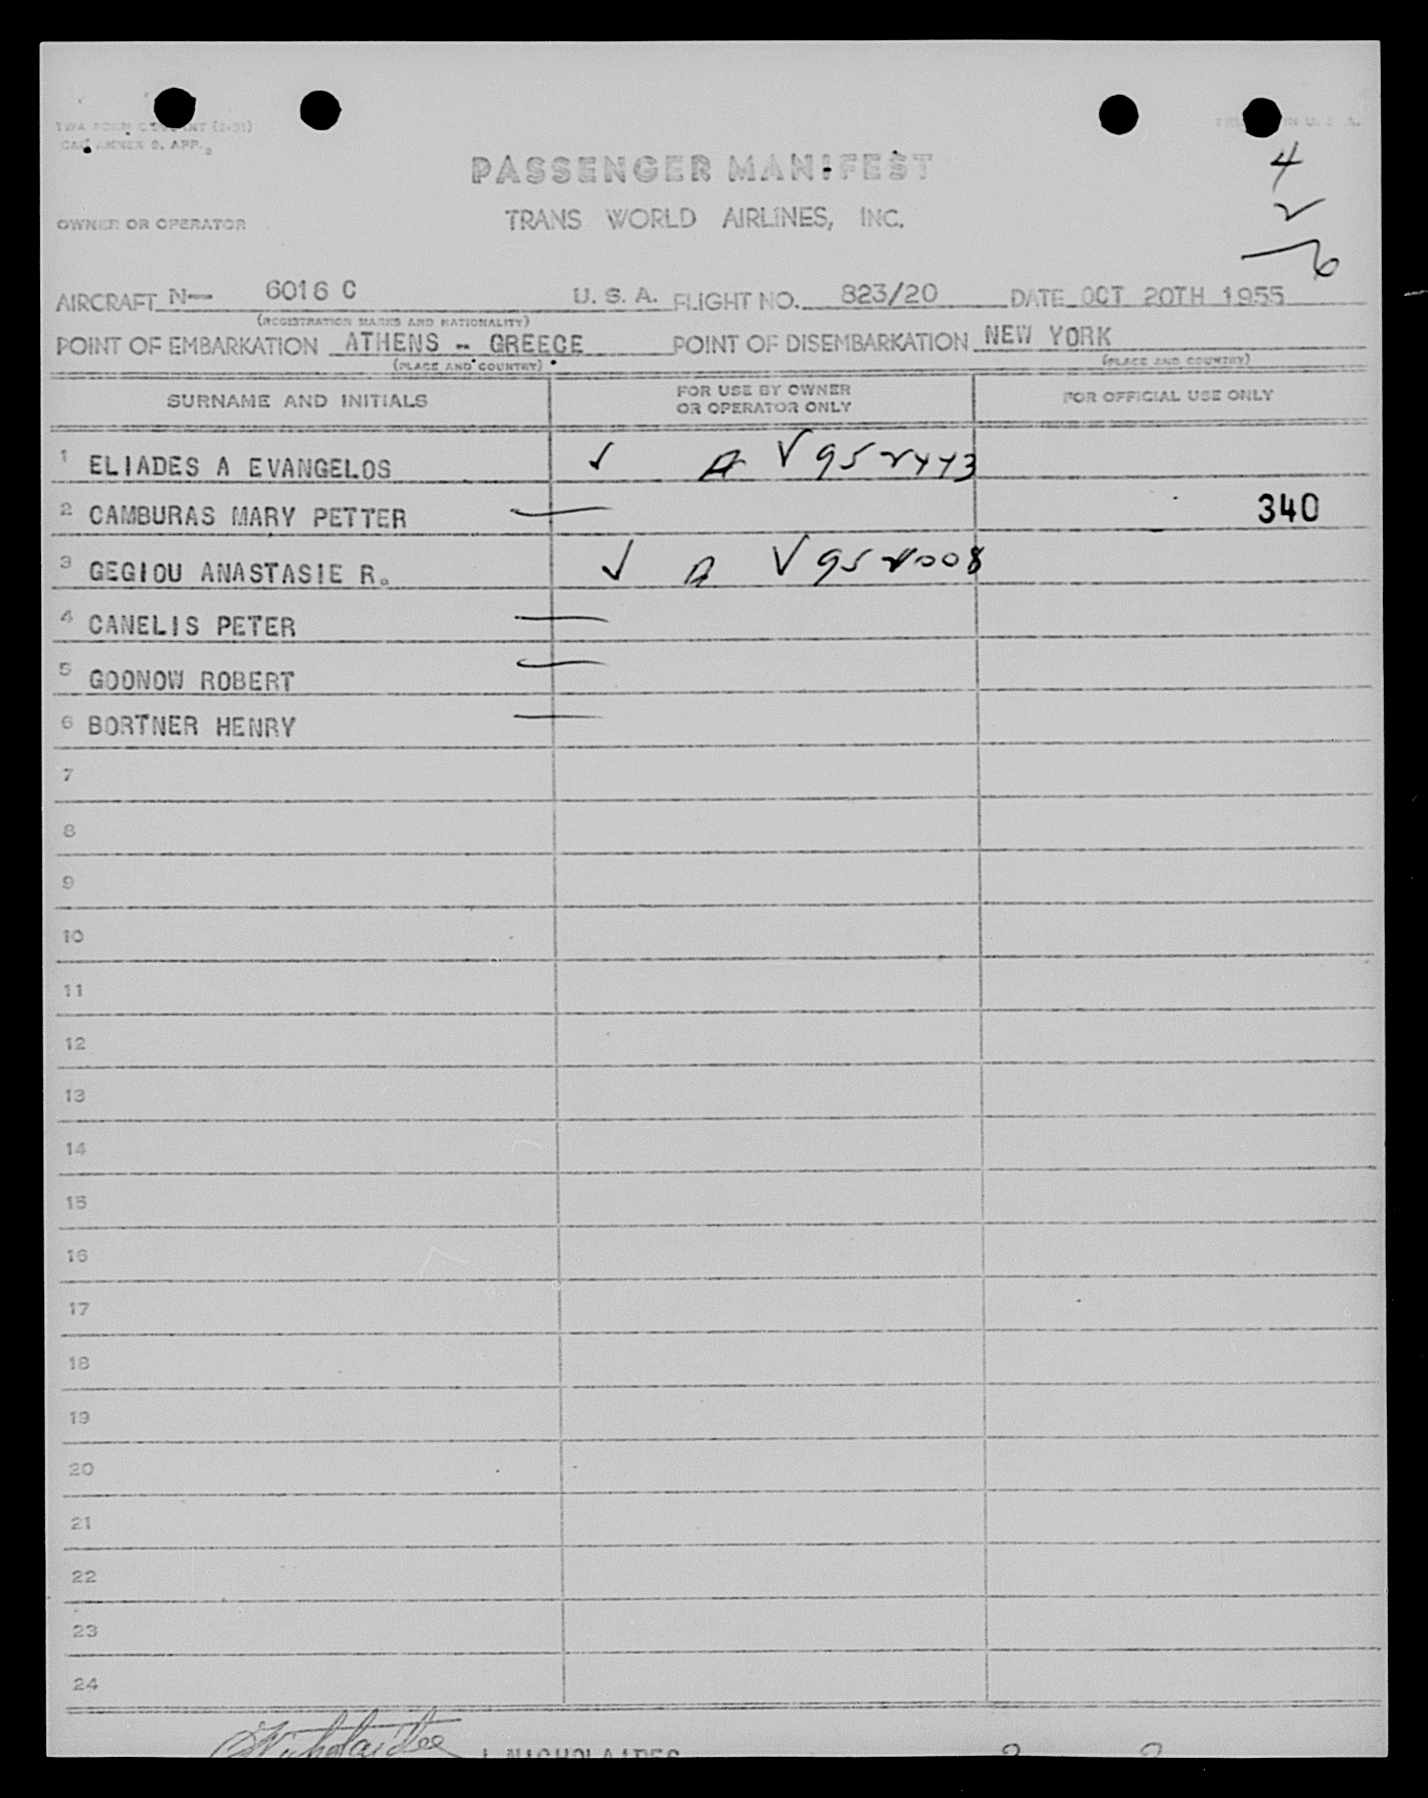 PASSENGER MANIFEST
4
2
6
OWNER OR OPERATOR
TRANS WORLD AIRLINES, INC.
AIRCRAFT N— 6016 C U. S. A. FLIGHT NO. 823/20 DATE OCT 20TH 1955
(REGISTRATION MARKS AND NATIONALITY)
POINT OF EMBARKATION ATHENS - GREECE POINT OF DISEMBARKATION NEW YORK
(PLACE AND COUNTRY) (PLACE AND COUNTRY)
SURNAME AND INITIALS FOR USE BY OWNER OR OPERATOR ONLY FOR OFFICIAL USE ONLY
1 ELIADES A EVANGELOS ✓ A V952443
2 CAMBURAS MARY PETTER — 340
3 GEGIOU ANASTASIE R. ✓ A V952008
4 CANELIS PETER —
5 GOONOW ROBERT —
6 BORTNER HENRY —
7
8
9
10
11
12
13
14
15
16
17
18
19
20
21
22
23
24